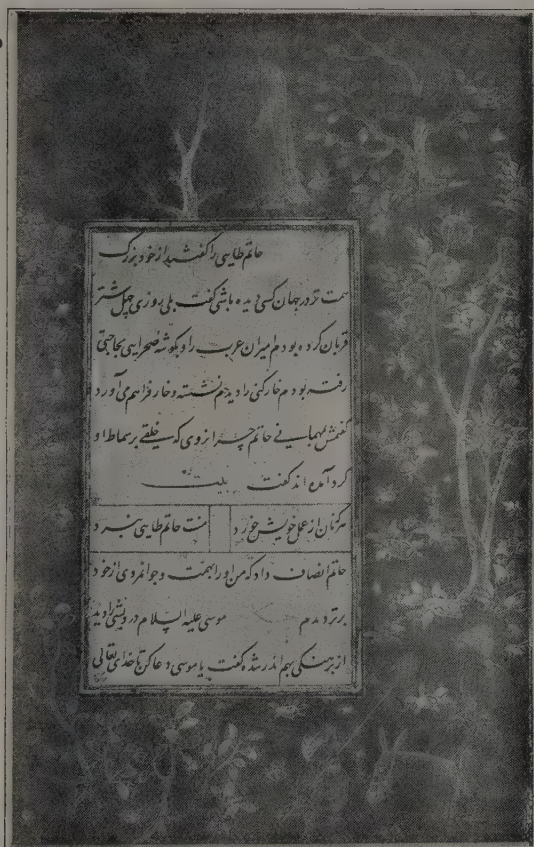 حاتم طایی را گفتند از خود بزرگ
همت تر در جهان کسی دیده باشی گفت بلی روزی چهل شتر
قربان کرده بودم امیران عرب را و بگوشه صحرایی بحاجتی
رفته بودم خارکنی را دیدم نشسته و خار فراهم می آورد
گفتمش بمهمانی حاتم چرا نروی که خلقی بر سماط او
گرد آمده اند گفت بیت
هر که نان از عمل خویش خورد منت حاتم طایی نبرد
حاتم انصاف داد که من او را بهمت و جوانمردی از خود
برتر دیدم موسی علیه السلام درویشی را دید
از برهنگی بریگ اندر شده گفت یا موسی دعا کن تا خدای تعالی